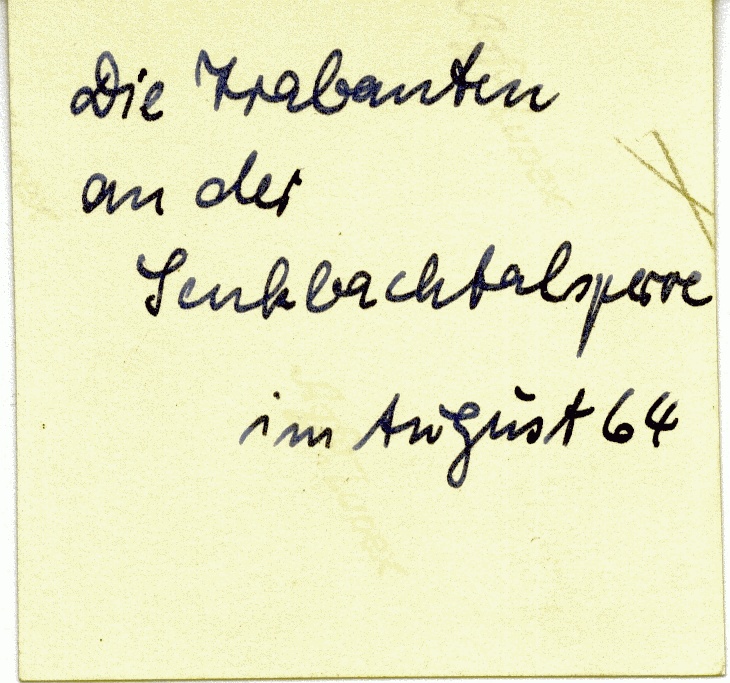 Die Trabanten
an der
Senkbachtalsperre
im August 64